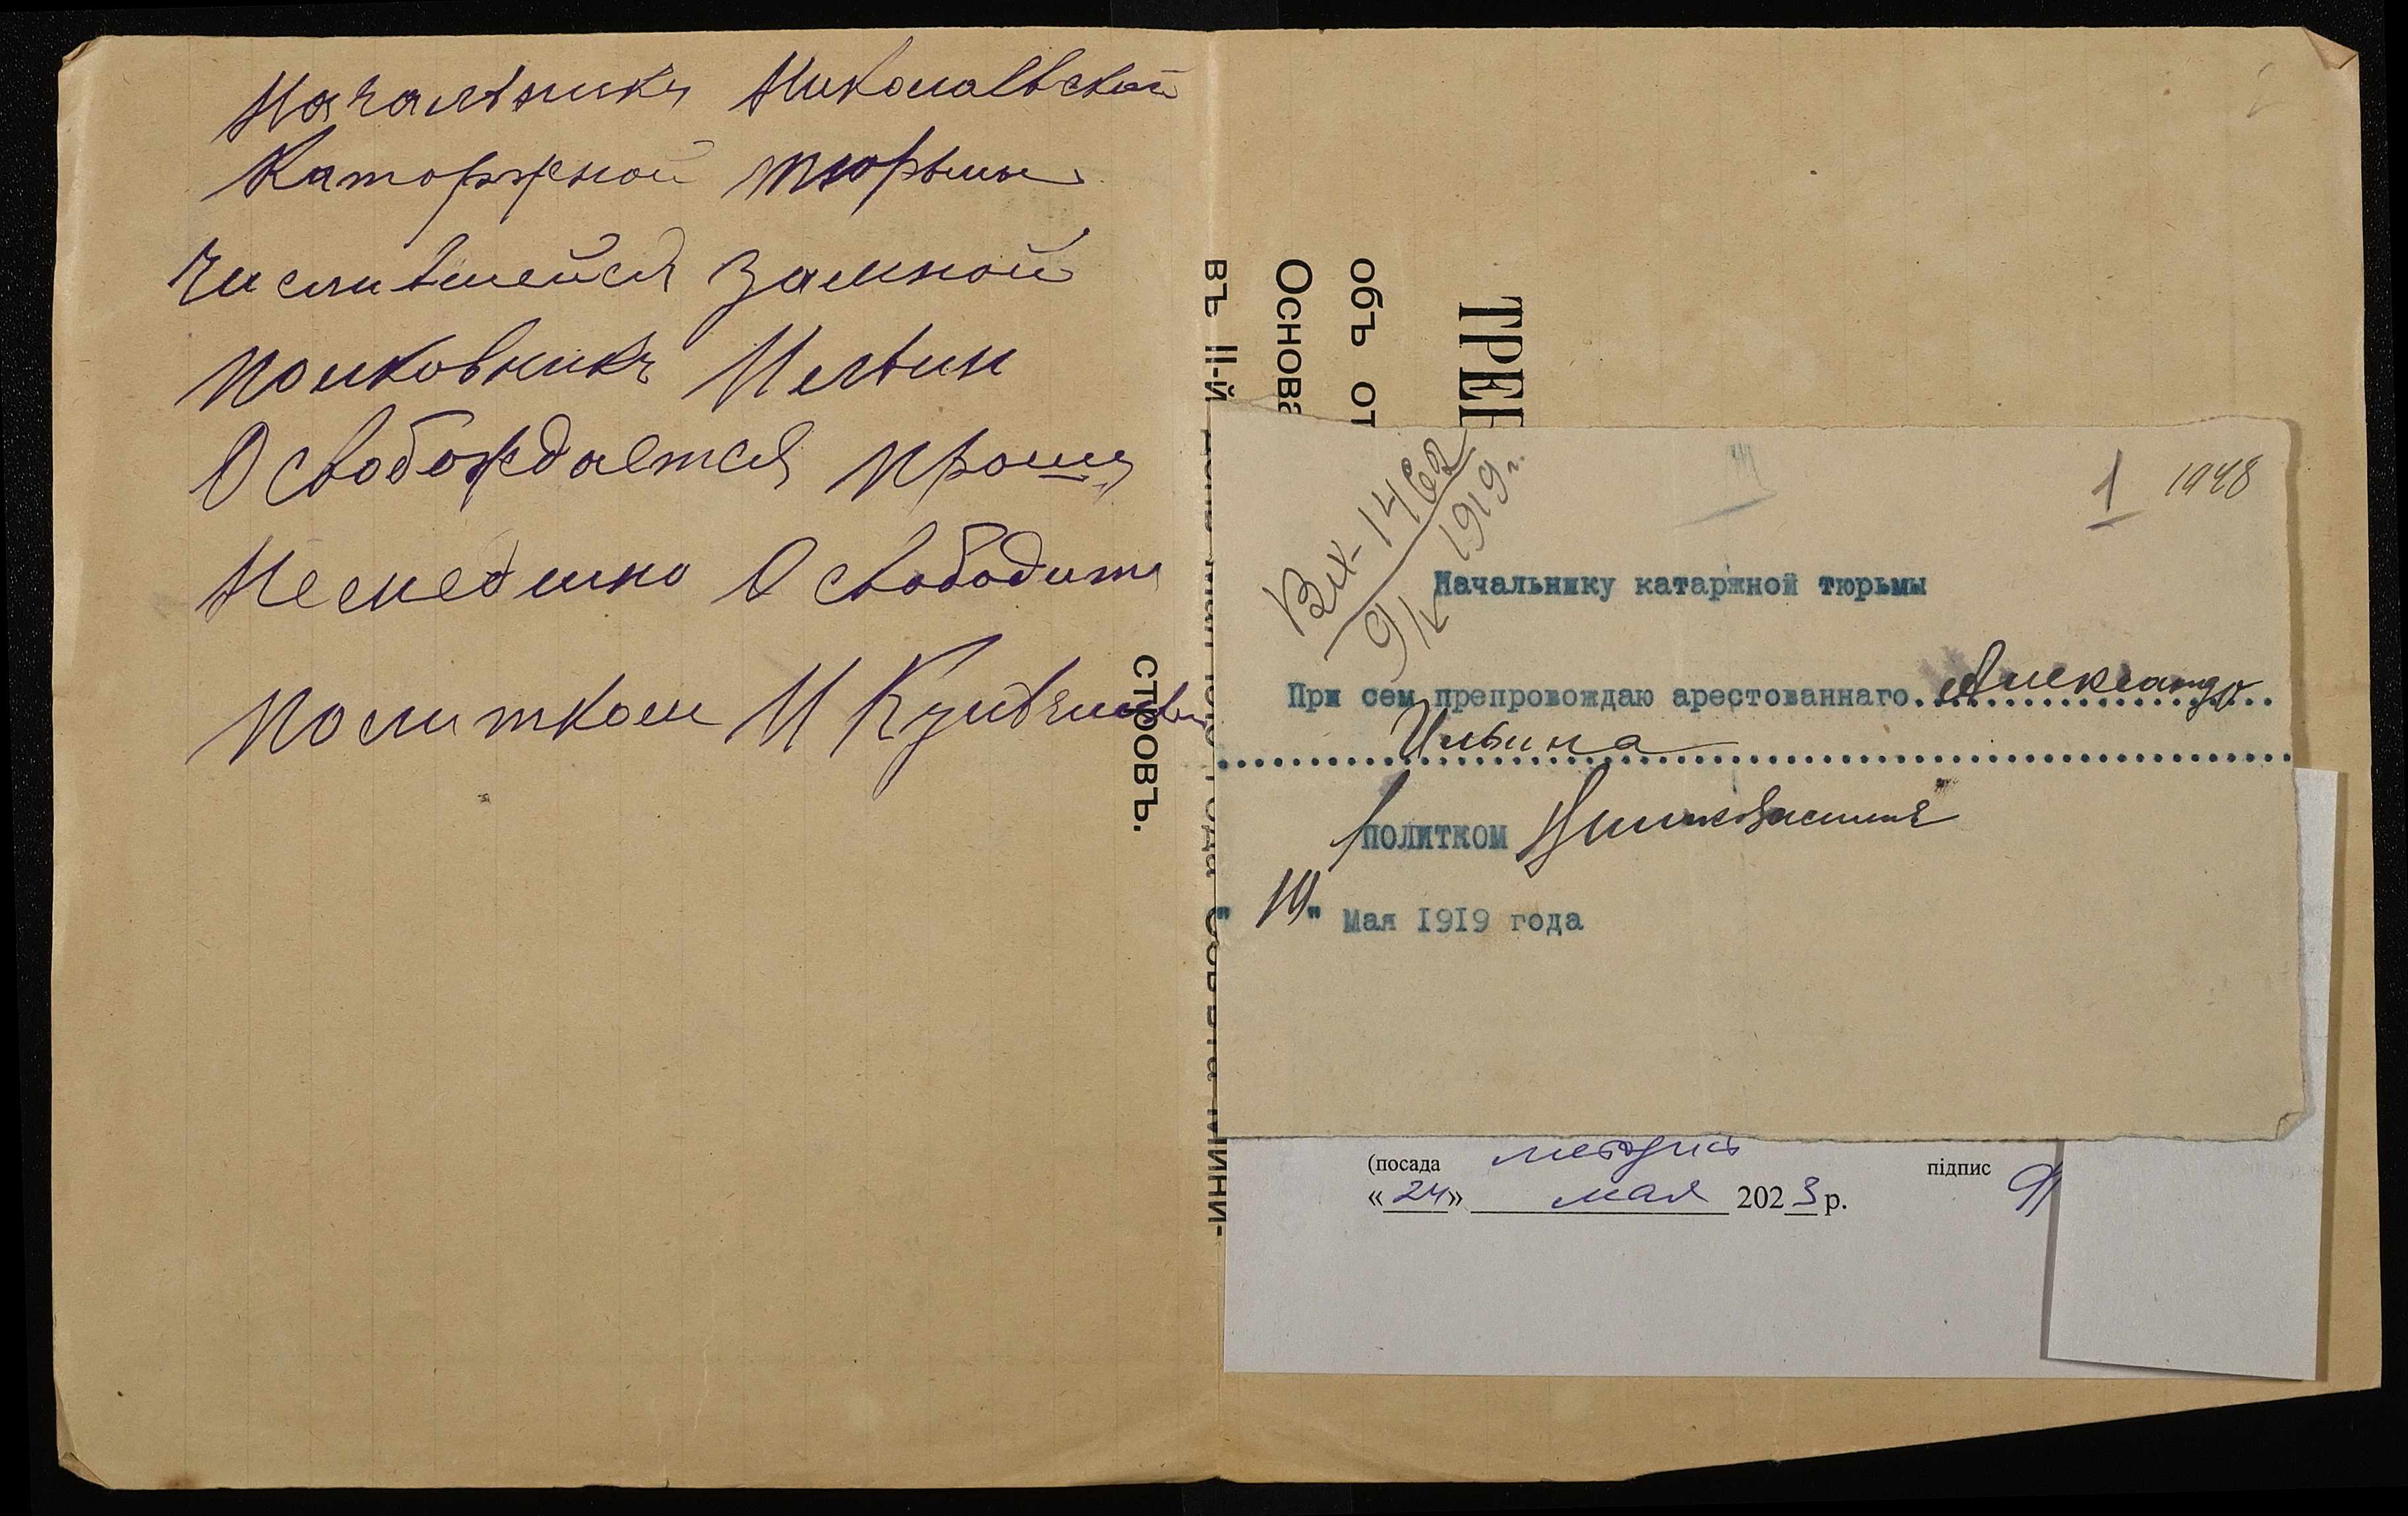 Начальнику Николаевской
Каторжной тюрьмы
Числившейся замной
полковникъ Ильин
Освобождается прошу
Немедлино Освободить
Политком И
ТРЕБ
объ от
Основа
въ II-й
стровъ.
1 1948
Вх-1462
9/V 1919 г.
Начальнику катаржной тюрьмы
При сем препровождаю арестованнаго Александр
Ильина
политком
"10" Мая 1919 года
(посада методист підпис
«24» мая 2023 р.